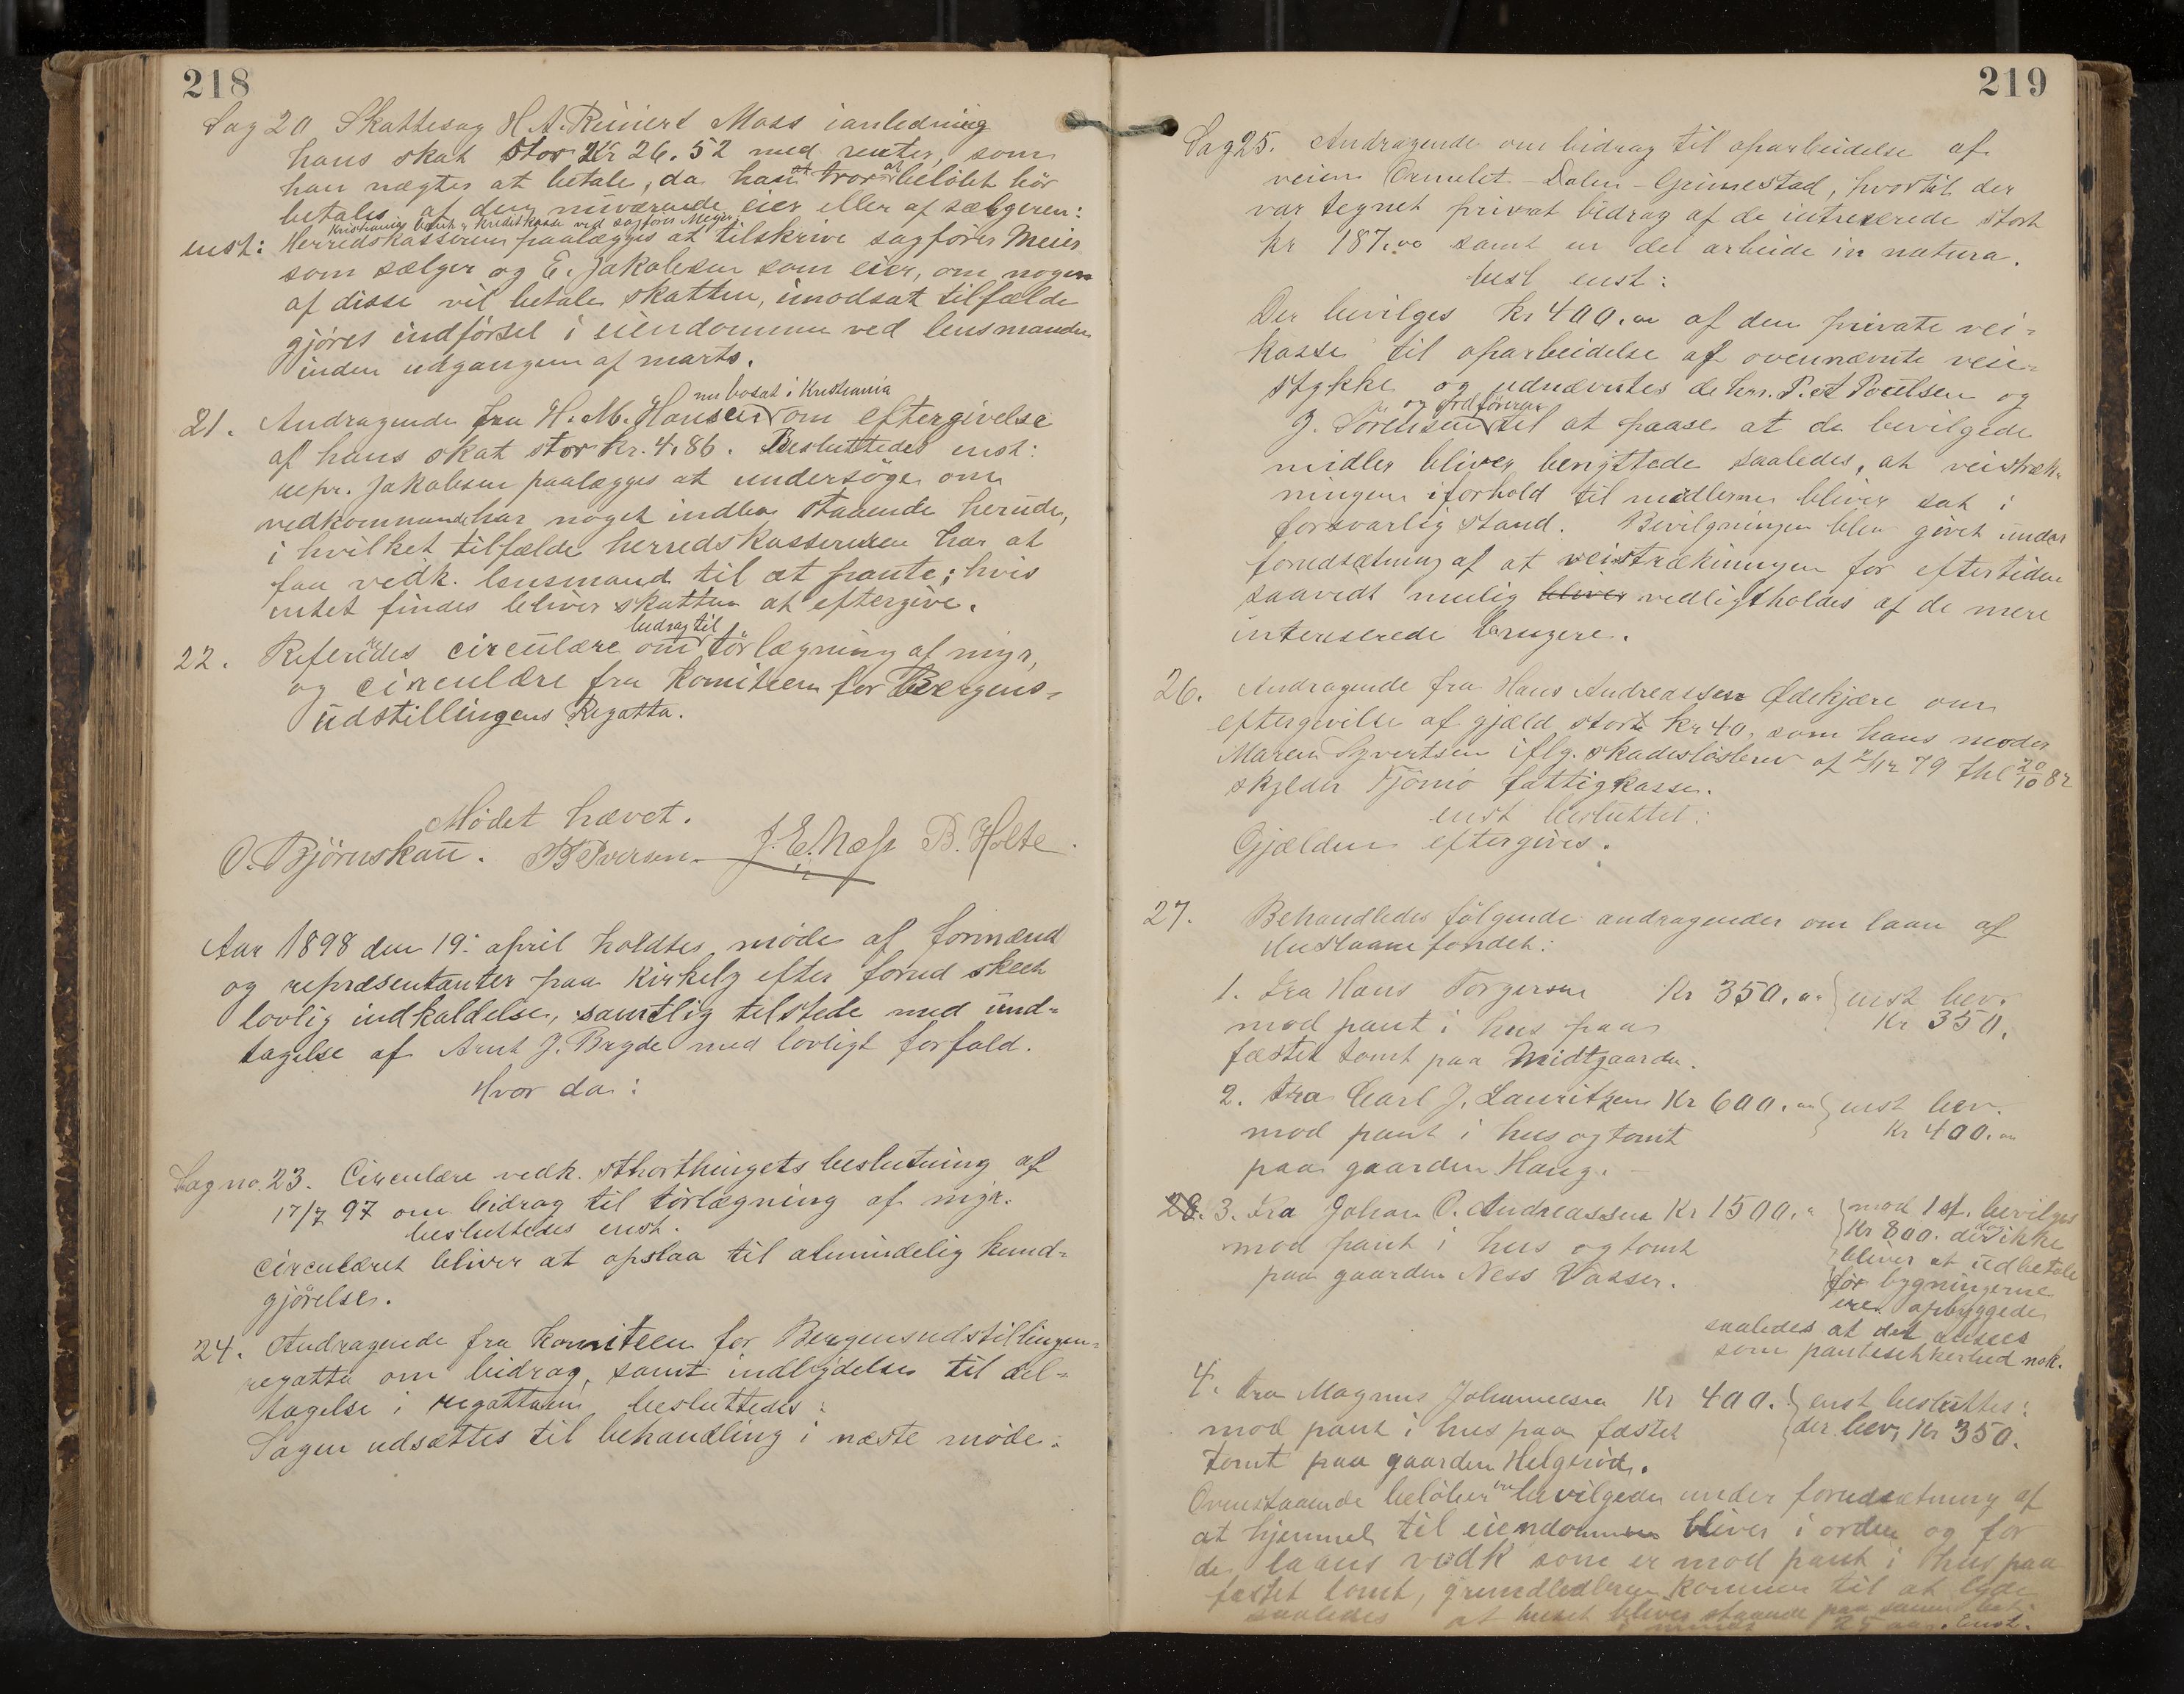 218
Sag 20 Skattesag H. A. Reinert Moss ianledning
hans skat stor Kr 26.52 med renter, som
han nægter at betale, da han tror at beløbet bör
betales af den nuværende eier eller af sælgeren:
Kristiania bank & Kreditkasse ved sagförer Meyer
enst: Herredskassereren paalægges at tilskrive sagförer Meier
som sælger og E. Jakobsen som eier, om nogen
af disse vil betale skatten, imodsat tilfælde
gjöres indförsel i eiendommen ved lensmanden
inden udgangen af marts.
nu bosat i Kristiania
21. Andragende fra H. M. Hansen om eftergivelse
af hans skat stor kr. 4.86. Besluttedes enst:
repr. Jakobsen paalægges at undersöge om
vedkommende har noget indbo staaende herude,
i hvilket tilfælde herredskassereren har at
faa vedk. lensmand til at pante; hvis
intet findes bliver skatten at eftergive.
bidrag til
22. Refereredes circulære om törlægning af myr,
og circulære fra Komiteen for Bergens-
udstillingens Regatta.
Mödet hævet.
O. Björnskau. B Iversen. J. E. Næss B. Holte.
Aar 1898 den 19: april holdtes möde af formænd
og repræsentanter paa Kirkely efter forud skeet
lovlig indkaldelse, samtlig tilstede med und-
tagelse af Arnt J. Bryde med lovligt forfald.
Hvor da:
Sag no. 23. Circulære vedk. Sthorthingets beslutning af
17/7 97 om bidrag til törlægning af myr.
besluttedes enst.
Circulæret bliver at opslaa til almindelig kund-
gjörelse.
24. Andragende fra Komiteen for Bergensudstillingen-
regatta om bidrag, samt indbydelse til del-
tagelse i regattaen besluttedes:
Sagen udsættes til behandling i næste möde.
219
Sag 25. Andragende om bidrag til oparbeidelse af
veien Ormelet - Dalen - Grimestad, hvortil der
var tegnet privat bidrag af de intreserede stort
kr 187.00 samt en del arbeide in natura.
besl enst:
Der bevilges kr 400.00 af den private vei-
kasse til oparbeidelse af ovennævnte vei-
stykke og udnævntes de hrr. P. A Poulsen og
og ordföreren
J. Sörensen til at paase at de bevilgede
midler bliver benyttede saaledes, at veistræk-
ningen iforhold til midlerne bliver sat i
forsvarlig stand. Bevilgningen blev givet under
forudsætning af at veistrækningen for eftertiden
saavidt mulig bliver vedligtholdes af de mere
intereserede brugere.
26. Andragende fra Hans Andreassen Ødekjære om
eftergivelse af gjæld stort kr 40, som hans moder
Maren Syvertsen iflg. skadeslösbrev af 2/12 79 thl 20/10 82
skylder Tjömö fattigkasse.
enst besluttet:
Gjælden eftergives.
27. Behandledes fölgende andragender om laan af
Huslaanefondet:
1. Fra Hans Torgersen Kr 350.00 enst bev.
mod pant i hus paa Kr 350.
fæstet tomt paa Midtgaarden.
2. Fra Carl J. Lauritzen Kr 600.00 enst bev.
mod pant i hus og tomt Kr 400.00
paa gaarden Haug.
28. 3. Fra Johan O. Andreassen Kr 1500.00 mod 1 st. bevilges
mod pant i hus og tomt Kr 800. der dog ikke
paa gaarden Ness Vasser. bliver at udbetale
för bygningerne
ere opbyggede
saaledes at det ansees
som pantesikkerhed nok.
4. Fra Magnus Johannesen Kr 400. enst besluttes:
mod pant i hus paa fæstet der bev. Kr 350.
tomt paa gaarden Helgeröd.
Ovenstaaende belöber er bevilgede under forudsætning af
at hjemmel til eiendommen bliver i orden og for
de laans vedk som er mod pant i hus paa
fæstet tomt, grundsedlerne kommer til at lyde
saaledes at huset bliver staaende paa samme
mindst 25 aar. Enst.